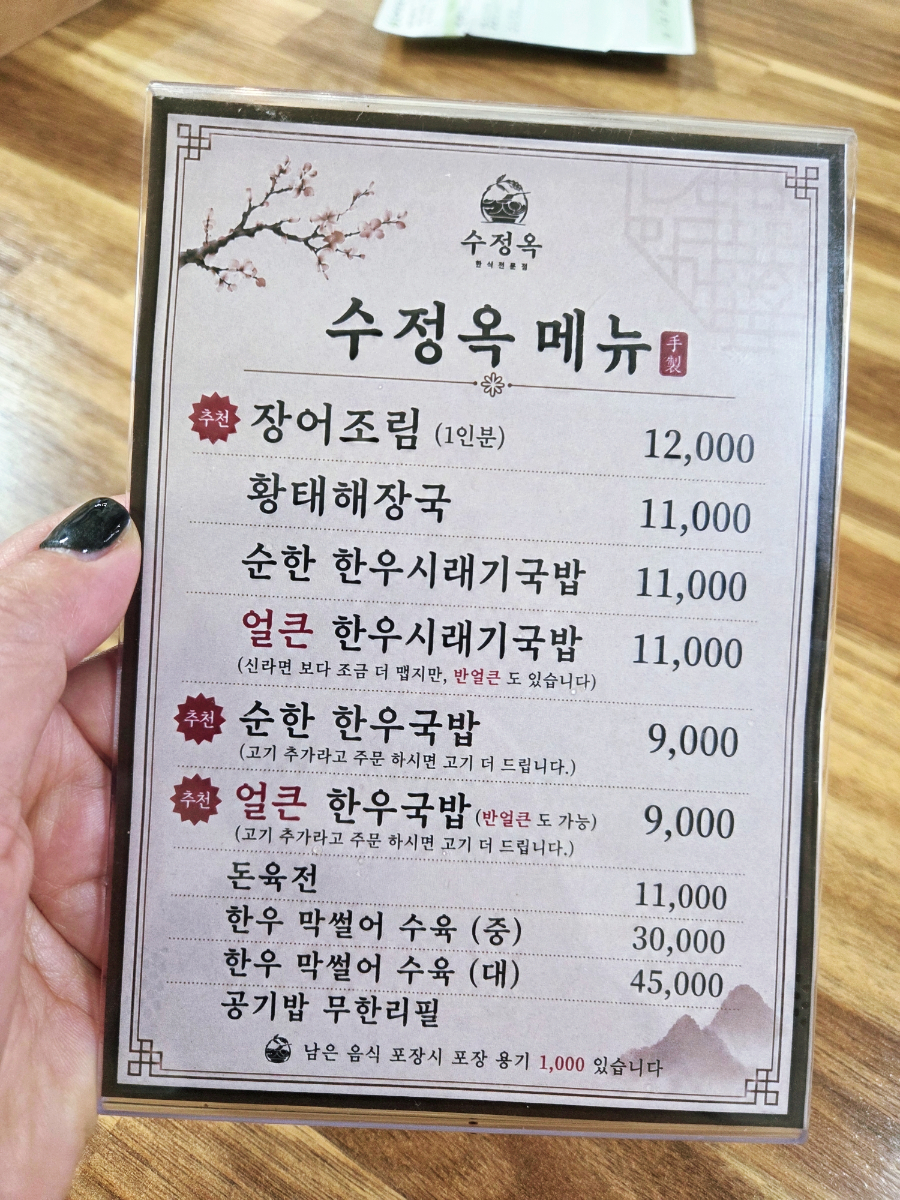 수정옥
한식전문점
수정옥 메뉴 手製
추천 장어조림 (1인분) 12,000
황태해장국 11,000
순한 한우시래기국밥 11,000
얼큰 한우시래기국밥 11,000
(신라면 보다 조금 더 맵지만, 반얼큰 도 있습니다)
추천 순한 한우국밥 9,000
(고기 추가라고 주문 하시면 고기 더 드립니다.)
추천 얼큰 한우국밥 (반얼큰 도 가능) 9,000
(고기 추가라고 주문 하시면 고기 더 드립니다.)
돈육전 11,000
한우 막썰어 수육 (중) 30,000
한우 막썰어 수육 (대) 45,000
공기밥 무한리필
남은 음식 포장시 포장 용기 1,000 있습니다